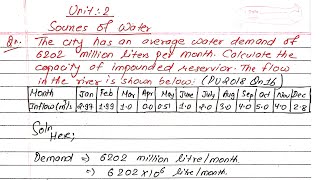 Unit: 2
Sources of Water
Qn. The city has an average water demand of
6202 million liters per month. Calculate the
capacity of impounded reservior. The flow
in the river is shown below: (PU2018 Qn1b)
Month Jan Feb Mar Apr May June July Aug Sep Oct Nov Dec
Inflow(m³/s) 2.97 1.99 1.0 0.0 0.51 1.0 3.0 4.0 5.0 4.0 2.8
Soln
Here,
Demand => 6202 million litre/month.
=> 6202×10⁶ litre/month.